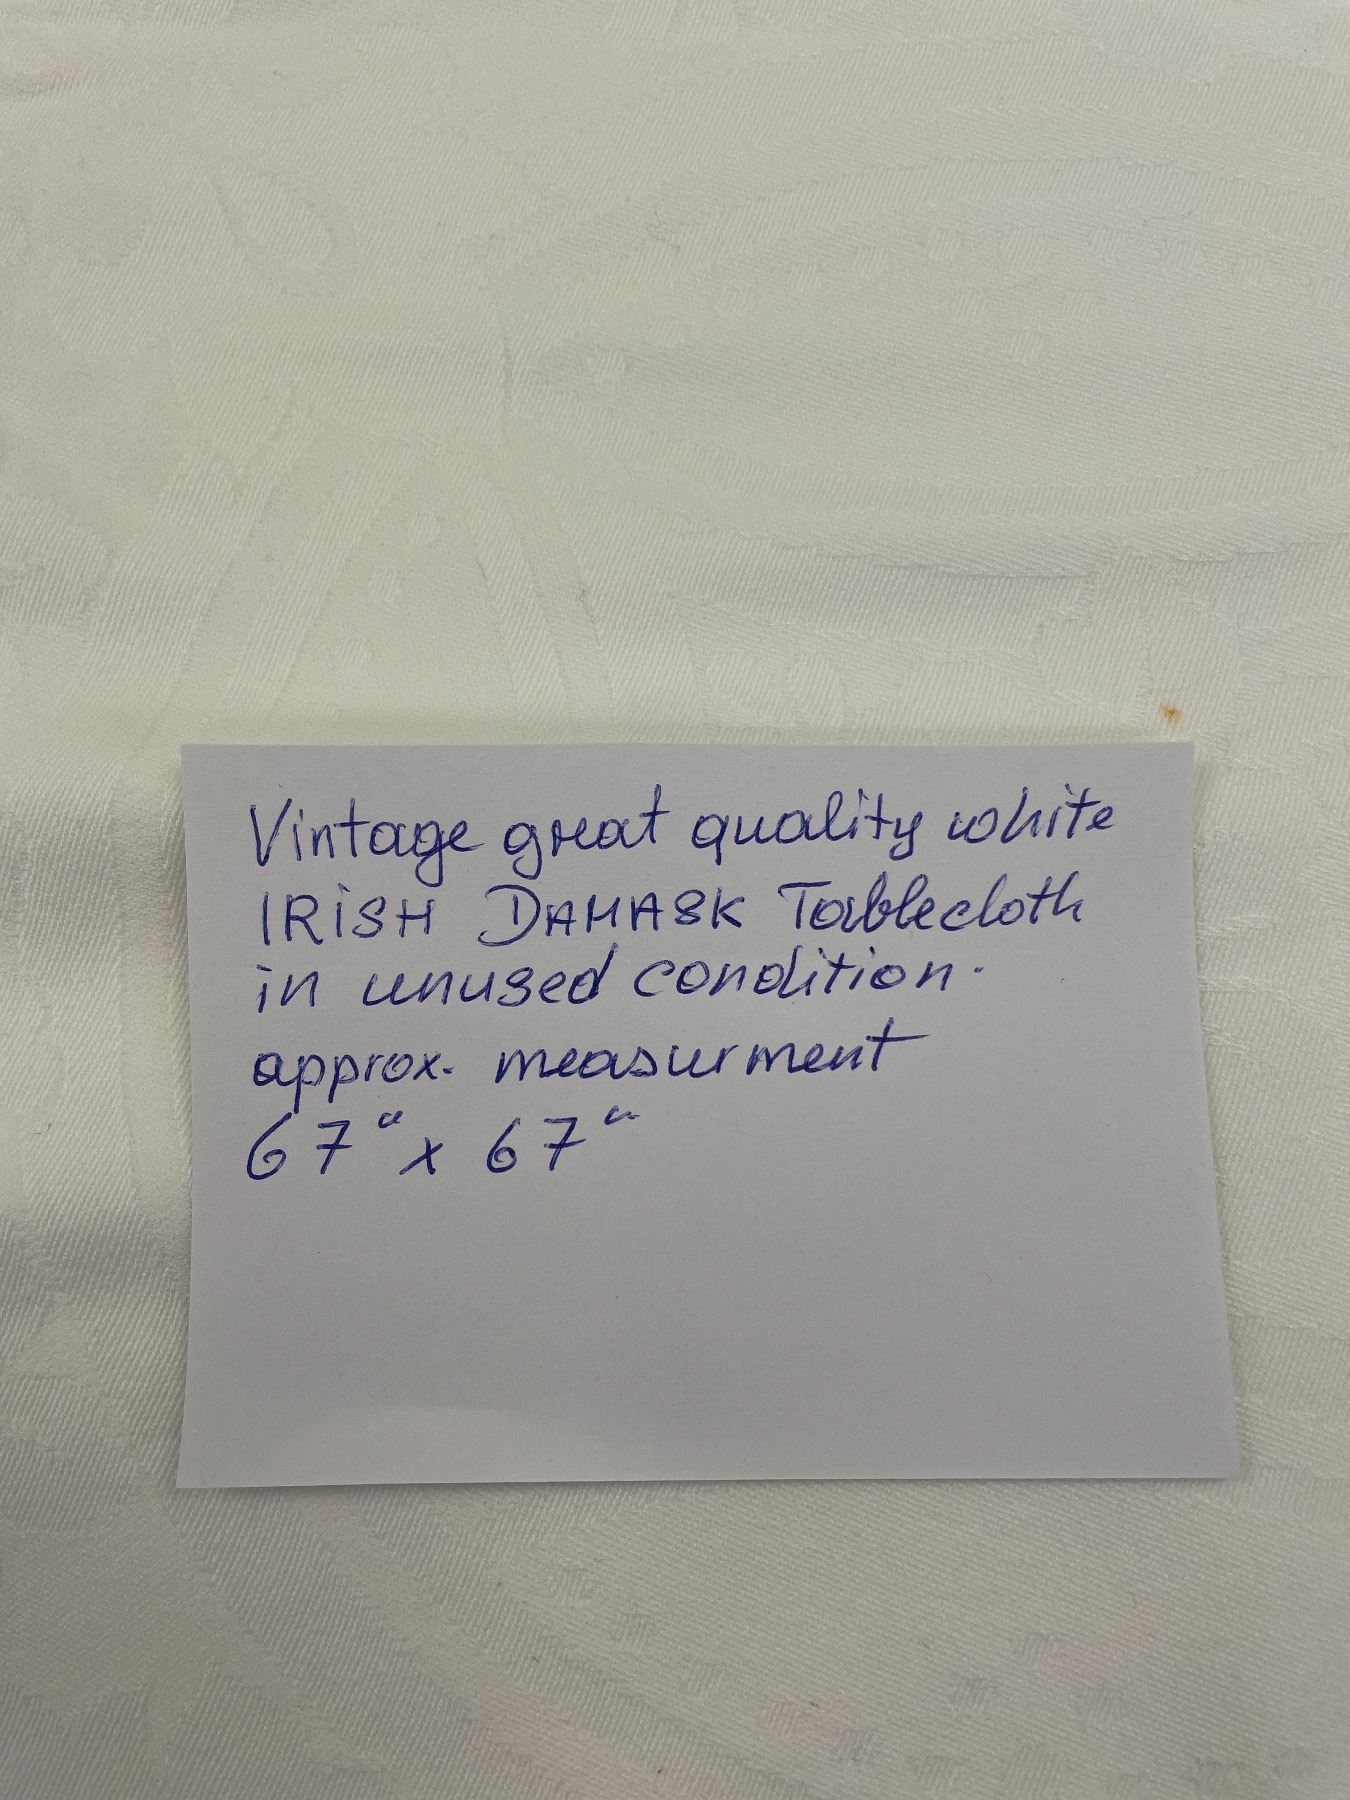 Vintage great quality white
IRISH DAMASK Tablecloth
in unused condition.
approx. measurment
67" x 67"